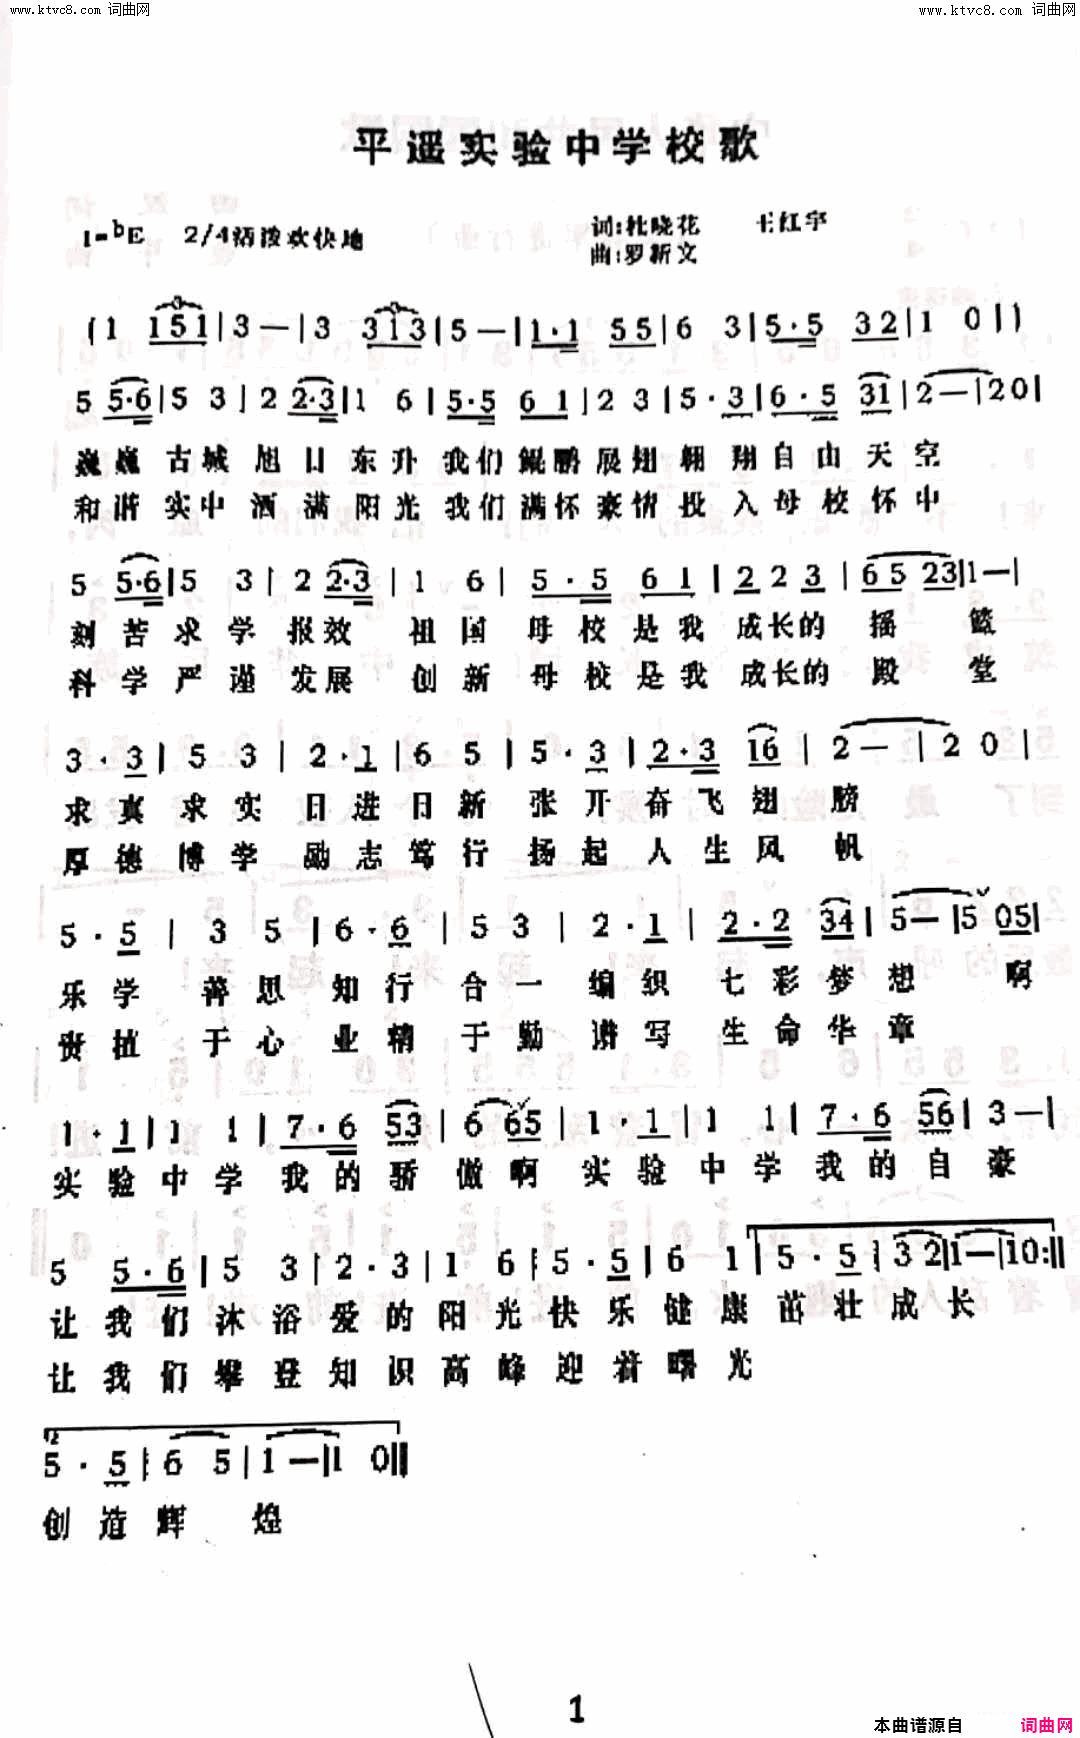 www.ktvc8.com 词曲网 www.ktvc8.com 词曲网
平遥实验中学校歌
1=bE 2/4 活泼欢快地 词:杜晓花 王红宇
曲:罗新文
(1 151|3—|3 313|5—|1·1 55|6 3|5·5 32|1 0||)
5 5·6|5 3|2 2·3|1 6|5·5 61|2 3|5·3|6·5 31|2—|20|
巍巍古城旭日东升我们鲲鹏展翅翱翔自由天空
和谐实中洒满阳光我们满怀豪情投入母校怀中
5 5·6|5 3|2 2·3|1 6|5·5 61|2 2 3|65 23|1—|
刻苦求学报效祖国母校是我成长的摇篮
科学严谨发展创新母校是我成长的殿堂
3·3|5 3|2·1|6 5|5·3|2·3 16|2—|2 0|
求真求实日进日新张开奋飞翅膀
厚德博学励志笃行扬起人生风帆
5·5|3 5|6·6|5 3|2·1|2·2 34|5—|5 05|
乐学善思知行合一编织七彩梦想啊
贵植于心业精于勤谱写生命华章
1·1|1 1|7·6 53|6 65|1·1|1 1|7·6 56|3—|
实验中学我的骄傲啊实验中学我的自豪
5 5·6|5 3|2·3|1 6|5·5|6 1|5·5|32|1—|10:||
让我们沐浴爱的阳光快乐健康茁壮成长
让我们攀登知识高峰迎着曙光
2
5·5|6 5|1—|1 0||
创造辉煌
1
本曲谱源自 词曲网